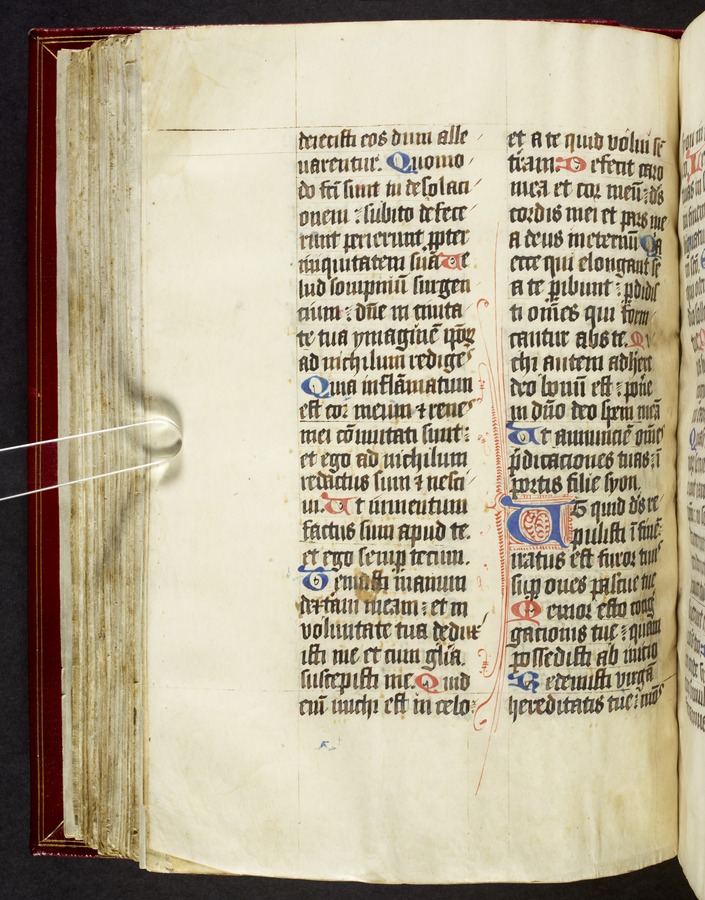 deiecisti eos dum alle
uarentur. Quomo
do fcī sunt in desolaci
onem : subito defece
runt perierunt ꝓpter
iniquitatem suā Ue
lud sompniū surgen
cium : dn̄e in ciuita
te tua ymaginē ip̄oꝝ
ad nichilum rediges
Quia inflāmatum
est cor meum ⁊ renes
mei cōmutati sunt :
et ego ad nichilum
redactus sum ⁊ nesci
ui. Ut iumentum
factus sum apud te.
et ego semꝑ tecum.
Tenuisti manum
dextam meam : et in
voluntate tua dedux
isti me et cum gl̄ia.
suscepisti me. Quid
enī michi est in celo :
et a te quid volui sr̄
terram. Defecit caro
mea et cor meū : ds̄
cordis mei et pars me
a deus in eternū Qꝛ
ecce qui elongant se
a te ꝑibunt : ꝑdidis
ti om̄es qui forni
cantur abs te. Mi
chi autem adhere
deo bonū est : pone
in dn̄o deo spem meā
Ut annunciē om̄es
p̄dicaciones tuas : ī
portis filie syon.
Ut quid ds̄ re
pulisti ī finē :
iratus est furor tuus
suꝑ oues pascue tue
Memor esto cong̃
gacionis tue : quam
possedisti ab inicio
Redemisti virgā
hereditatis tue : mōs